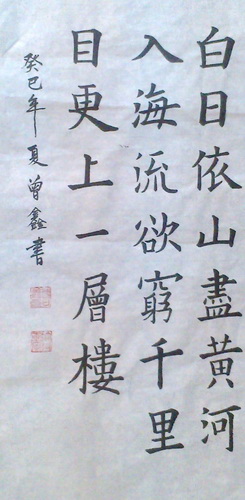 白日依山盡黃河
入海流欲窮千里
目更上一層樓
癸巳年夏曾鑫書